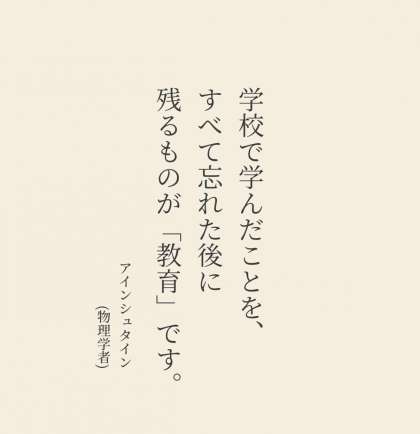 学校で学んだことを、
すべて忘れた後に
残るものが「教育」です。
アインシュタイン
(物理学者)